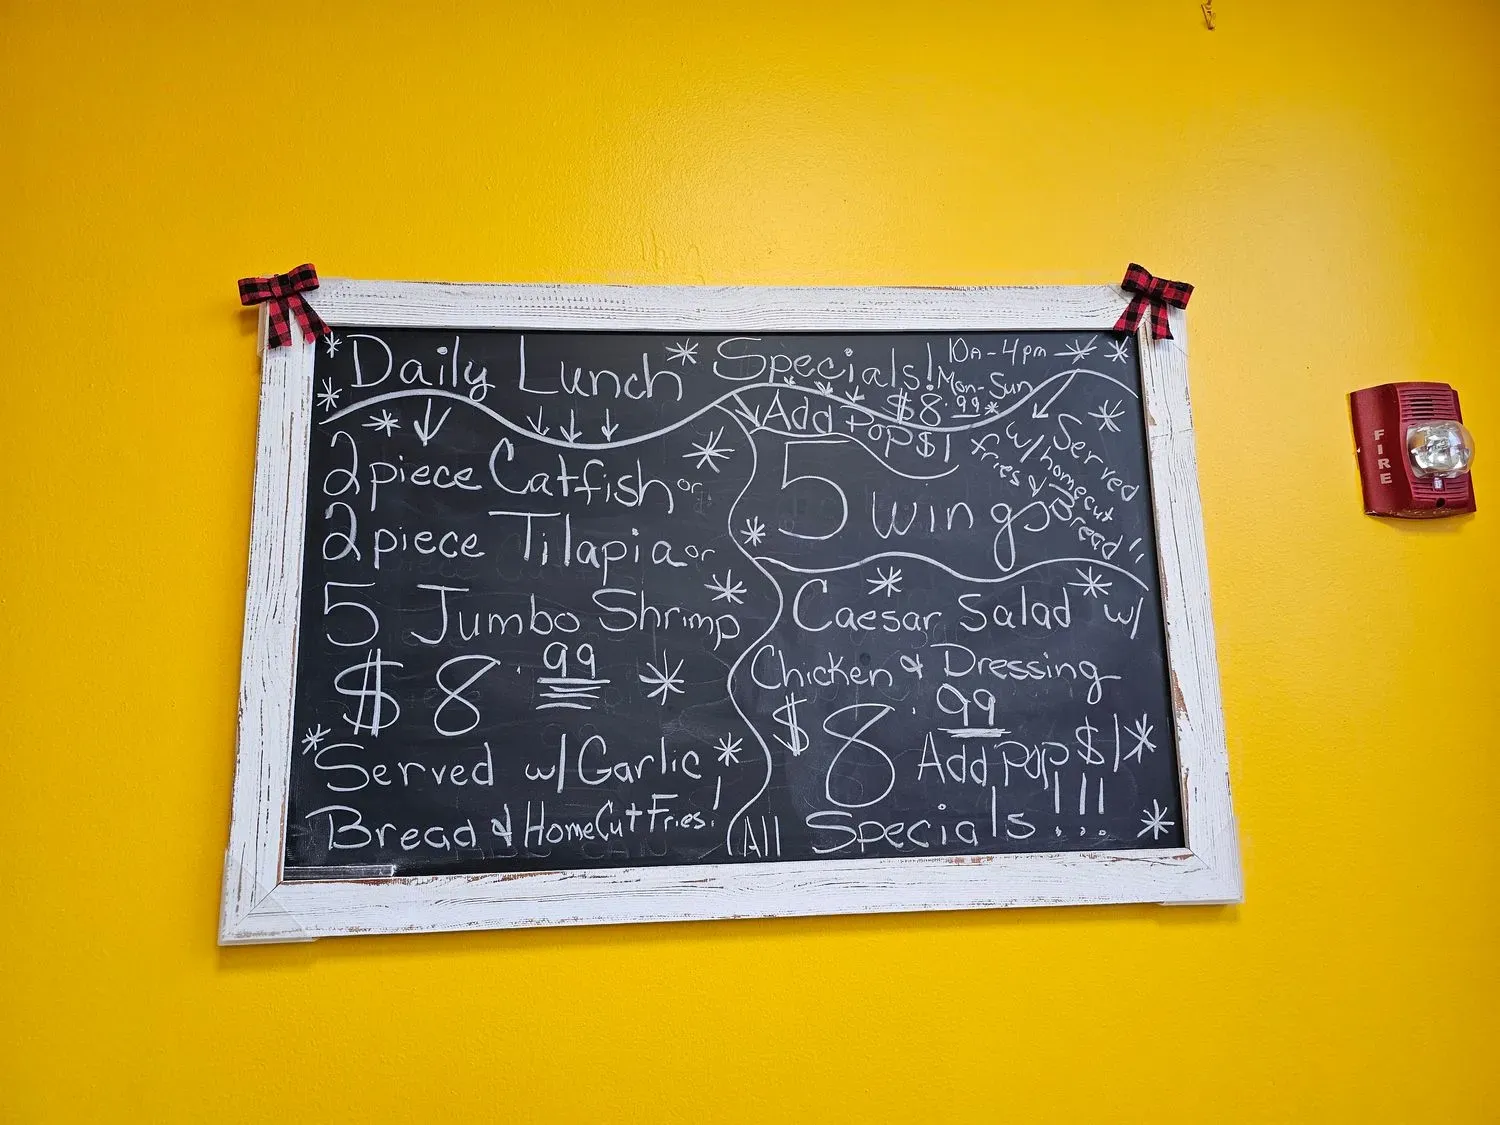 Daily Lunch Specials! 10A-4pm
Mon-Sun
$8.99
2 piece Catfish or
2 piece Tilapia or
5 Jumbo Shrimp
$8.99
Served w/ Garlic
Bread & HomeCut Fries!
Add Pop $1
5 wings
Served
w/ homecut
fries & Bread!!
Caesar Salad w/
Chicken & Dressing
$8.99
Add Pop $1
All Specials!!!
FIRE